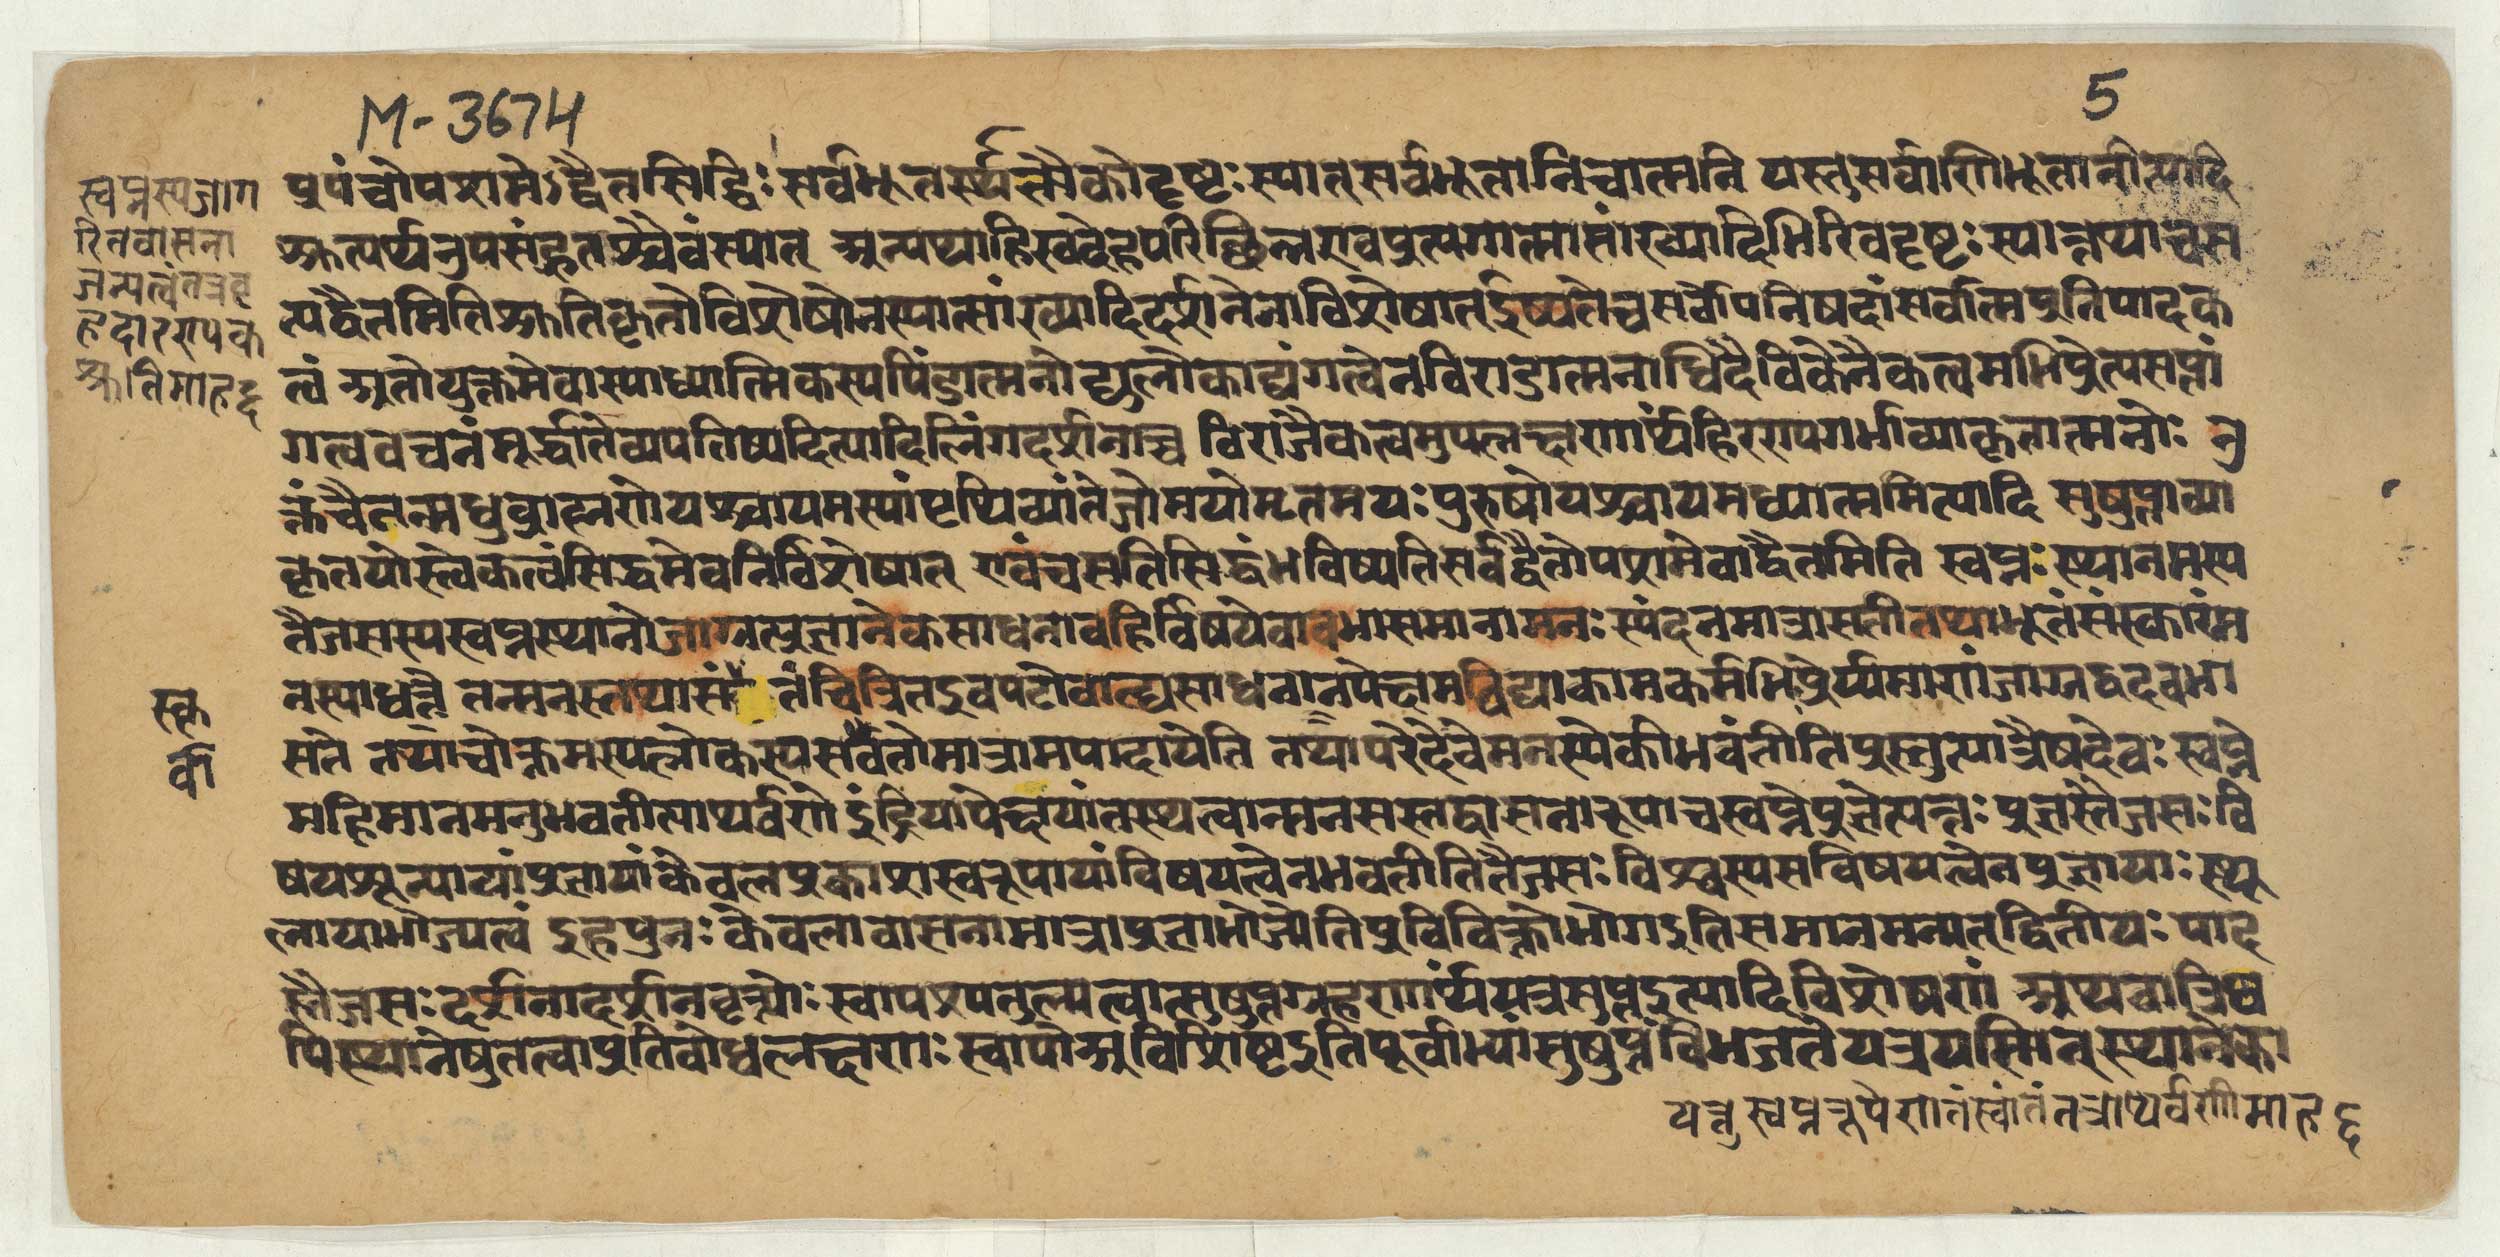 M-3674
5
प्रपंचोपशमेऽद्वैतसिद्धिः सर्वभूतस्थश्चात्मैकोदृष्टः स्यात्सर्वभूतानिचात्मनि यस्तुसर्वाणिभूतानीत्यादि
श्रुत्यर्थउपसंहृतश्चैवंस्यात् अन्यथाहिस्वदेहपरिछिन्नएवप्रत्यगात्मासांख्यादिभिरिवदृष्टः स्यात्तथाचस
त्यद्वैतमितिश्रुतिकृतोविशेषोनस्यात्सांख्यादिदर्शनेनाविशेषात् इष्यतेचसर्वोपनिषदांसर्वात्मप्रतिपादक
त्वं अतोयुक्तमेवास्याध्यात्मिकस्यपिंडात्मनोद्युलोकाद्यंगत्वेनविराडात्मनाधिदैविकेनैकत्वमभिप्रेत्यसप्तां
गत्ववचनंमूर्द्धातेव्यपतिष्यदित्यादिलिंगदर्शनाच्च विराजैकत्वमुपलक्षणार्थंहिरण्यगर्भाव्याकृतात्मनोः उ
क्तंचैतन्मधुब्राह्मणेयश्चायमस्यांपृथिव्यांतेजोमयोमृतमयः पुरुषोयश्चायमध्यात्ममित्यादि सुषुप्ताव्या
कृतयोस्त्वेकत्वंसिद्धमेवनिर्विशेषात् एवंचसतिसिद्धंभविष्यतिसर्वद्वैतोपशमेवाद्वैतमिति स्वप्नः स्थानमस्य
तैजसस्यस्वप्नस्थानोजाग्रत्प्रज्ञानेकसाधनावहिर्विषयेवावभासमानामनः स्पंदनमात्रासतीतथाभूतंसंस्कारंम
नस्याधत्ते तन्मनस्तथासं तंचित्रितइवपटोवाह्यसाधनानपेक्षमविद्याकामकर्मभिःप्रेर्यमाणंजाग्रद्वदवभा
सते तथाचोक्तमस्यलोकस्यसर्वतोमात्रामपादायेति तथापरेदेवेमनस्येकीभवंतीतिप्रस्तुत्यात्रैषदेवः स्वप्ने
महिमानमनुभवतीत्याथर्वणे इंद्रियापेक्षयांतस्थत्वान्मनसस्तद्वासनारूपाचस्वप्नेप्रज्ञेत्यन्तः प्रज्ञस्तैजसः वि
षयशून्यायांप्रज्ञायांकेवलप्रकाशस्वरूपायांविषयत्वेनभवतीतितैजसः विश्वस्यसविषयत्वेनप्रज्ञायाः स्थू
लायाभोज्यत्वं इहपुनः केवलावासनामात्राप्रज्ञाभोज्येतिप्रविविक्तोभोगइतिसमानमन्यत्द्वितीयः पाद
स्तैजसः दर्शनादर्शनवृत्त्योः स्वापस्यतुल्यत्वात्सुषुप्तग्रहणार्थंयत्रसुप्तइत्यादिविशेषणं अथवात्रिष्व
पिस्थानेषुतत्वाप्रतिवोधलक्षणः स्वापोअविशिष्टइतिपूर्वाभ्यांसुषुप्तंविभजतेयत्रयस्मिन्स्थानेका
स्वप्नस्यजाग
रितवासना
जन्यत्वेतत्रबृ
हदारण्यक
श्रुतिमाहह
स्कृ
र्वा
यत्तुस्वप्नरूपेणांतंस्वांतंतत्राथर्वणीमाहह